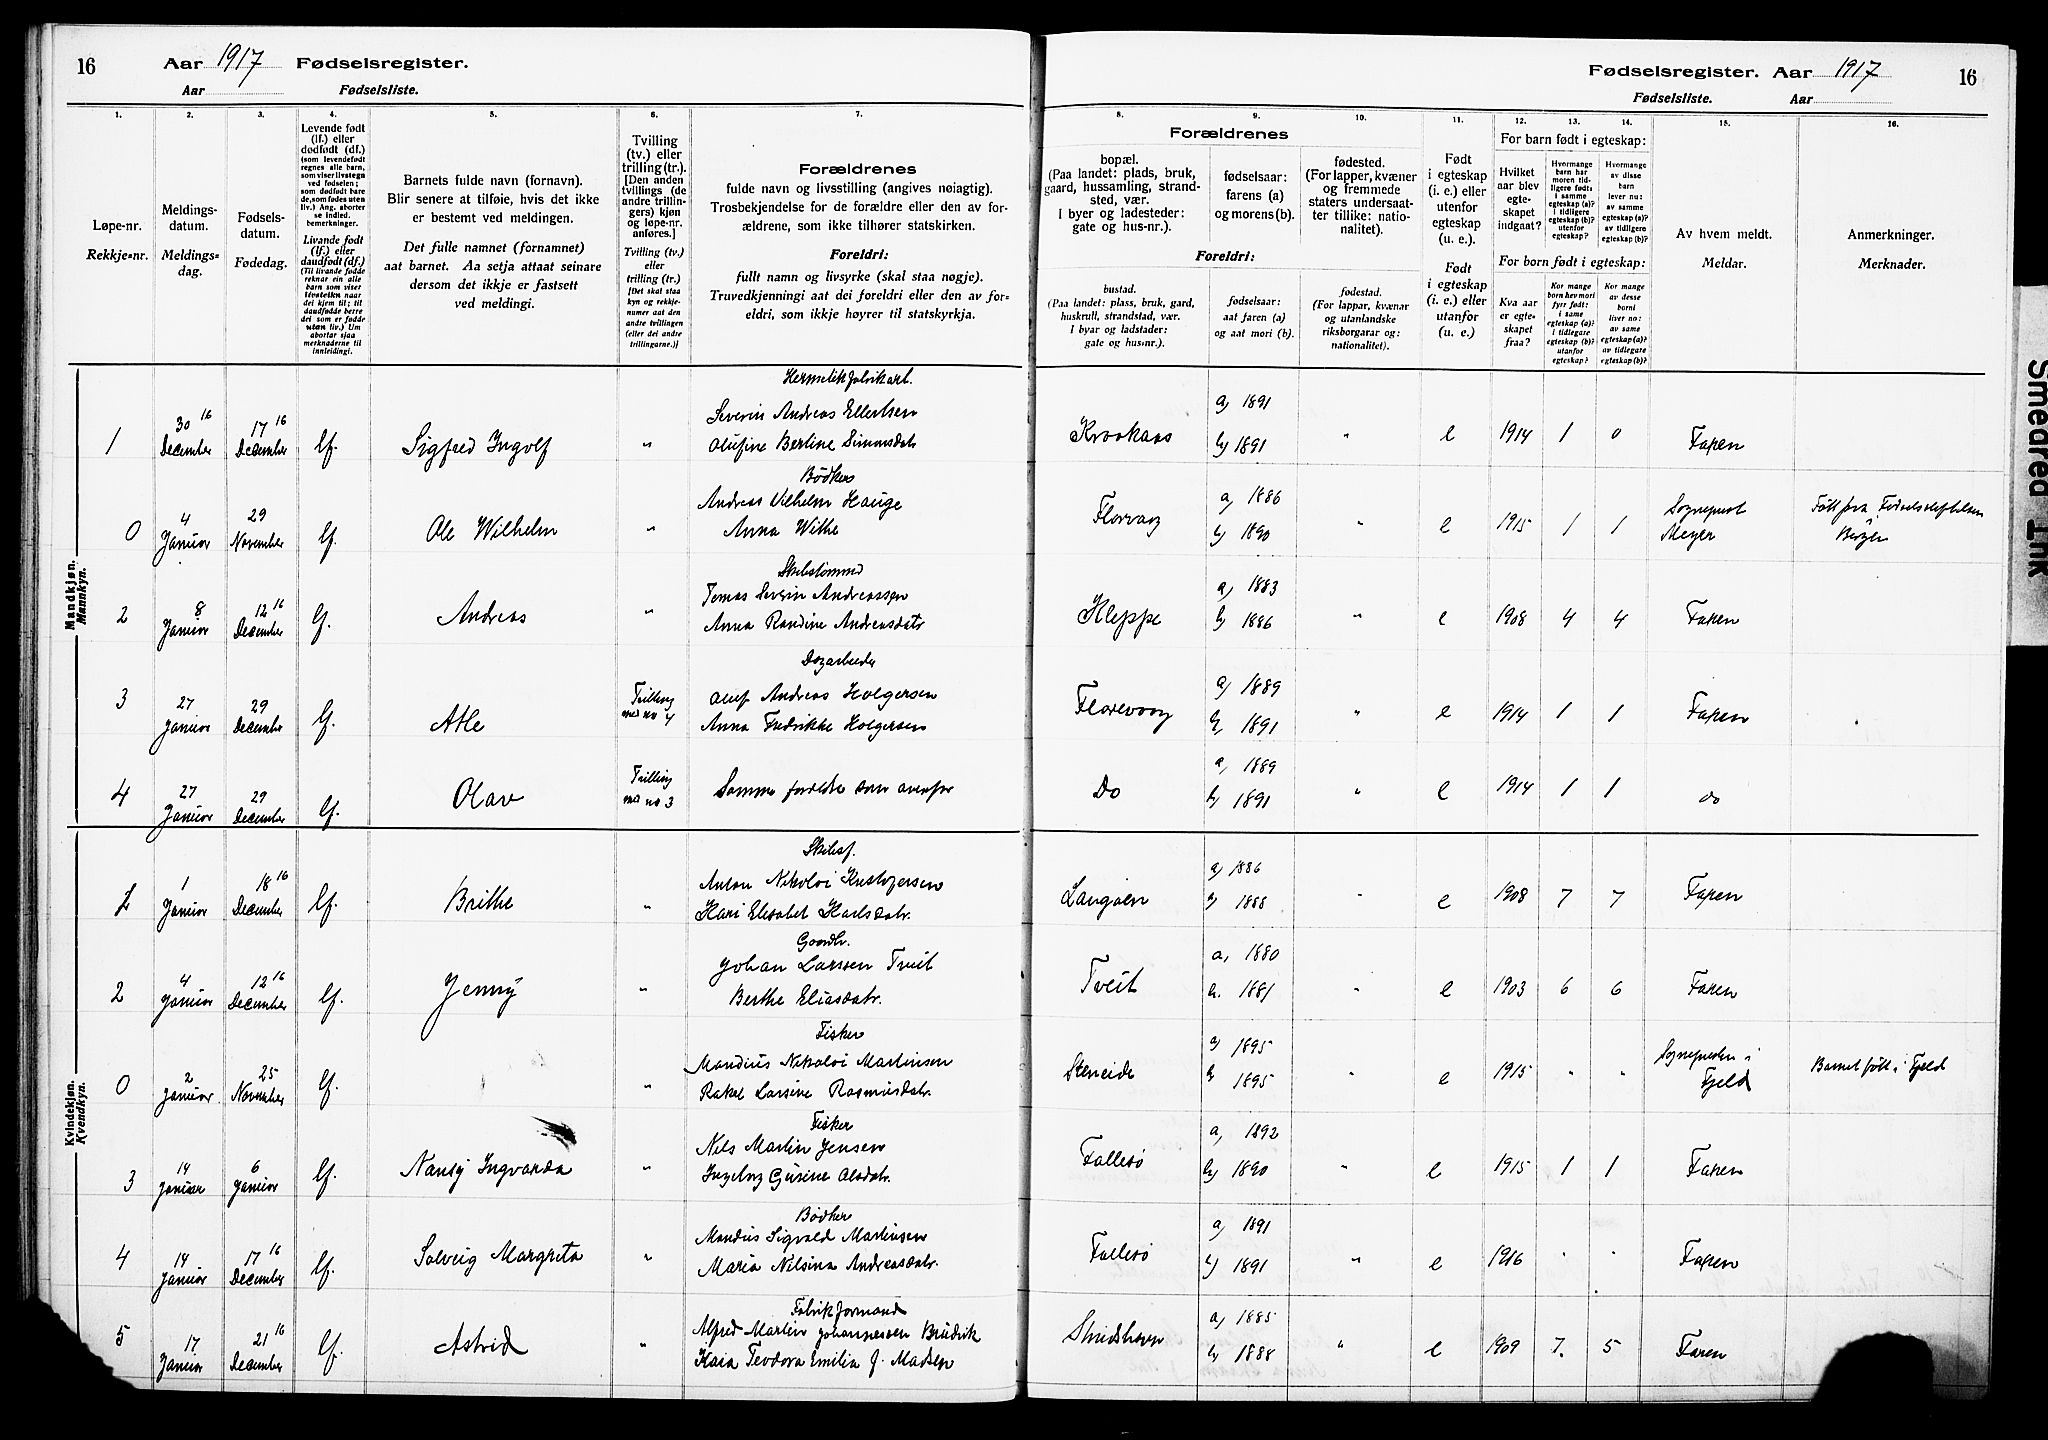 16 Aar 1917 Fødselsregister.
Aar Fødselsliste.
Fødselsregister. Aar 1917 16
Fødselsliste. Aar
1. 2. 3. 4. 5. 6. 7.
Løpe-nr.
Rekkje-nr.
Meldings-
datum.
Meldings-
dag.
Fødsels-
datum.
Fødedag.
Levende født
(lf.) eller
dødfødt (df.)
(som levendefødt
regnes alle barn,
som viser livstegn
ved fødselen;
som dødfødt bare
de, som fødes uten
liv.) Ang. aborter
se indled.
bemerkninger.
Livande født
(lf.) eller
daudfødt (df.)
(Til livande fødde
reknar ein alle
barn som viser
livsteikn naar
dei kjem til; til
daudfødde berre
dei som er fødde
utan liv.) Um
abortar sjaa
merknaderne til
innleidingi.
Barnets fulde navn (fornavn).
Blir senere at tilføie, hvis det ikke
er bestemt ved meldingen.
Det fulle namnet (fornamnet)
aat barnet. Aa setja attaat seinare
dersom det ikkje er fastsett
ved meldingi.
Tvilling
(tv.) eller
trilling (tr.).
[Den anden
tvillings (de
andre trillin-
gers) kjøn
og løpe-nr.
anføres.]
Tvilling (tv.)
eller
trilling (tr.)
[Det skal staa
kyn og rekkje-
numer aat den
andre tvillingen
(eller dei andre
trillingarne.)]
Forældrenes
fulde navn og livsstilling (angives nøiagtig).
Trosbekjendelse for de forældre eller den av for-
ældrene, som ikke tilhører statskirken.
Foreldri:
fullt namn og livsyrke (skal staa nøgje).
Truvedkjenningi aat dei foreldri eller den av for-
eldri, som ikkje høyrer til statskyrkja.
8. 9. 10. 11. 12. 13. 14. 15. 16.
Forældrenes
bopæl.
(Paa landet: plads, bruk,
gaard, hussamling, strand-
sted, vær.
I byer og ladesteder:
gate og hus-nr.).
Foreldri:
bustad.
(Paa landet: plass, bruk, gard,
huskrull, strandstad, vær.
I byar og ladstader:
gate og hus-nr.).
fødselsaar:
farens (a)
og morens (b).
fødselsaar:
aat faren (a)
og aat mori (b).
fødested.
(For lapper, kvæner
og fremmede
staters undersaat-
ter tillike: natio-
nalitet).
fødestad.
(For lappar, kvænar
og utanlandske
riksborgarar og:
nationalitet).
Født
i egteskap
(i. e.) eller
utenfor
egteskap
(u. e.).
Født
i egteskap
(i. e.) eller
utanfor
(u. e.).
For barn født i egteskap:
Hvilket
aar blev
egte-
skapet
indgaat?
Hvormange
barn har
moren tid-
ligere født:
i samme
egteskap (a)?
i tidligere
egteskap (b)?
utenfor
egteskap?
Hvormange
av disse
barn
lever nu:
av samme
egteskap (a)?
av tidligere
egteskap (b)?
For born født i egteskap:
Kva aar
er egte-
skapet
fraa?
Kor mange
born hev mori
fyrr født:
i same
egteskap (a)?
i tidlegare
egteskap (b)?
utanfor
egteskap?
Kor mange
av desse
borni
liver no:
av same
egteskap (a)?
av tidlegare
egteskap (b)?
Av hvem meldt.
Meldar.
Anmerkninger.
Merknader.
Mandkjøn.
Mannkyn.
Hermetikfabrikarb.
1 30 16 December 17 16 December lf. Sigfred Ingolf " Severin Andreas Ellertsen a, 1891
Olufine Bertine Simonsdatr Krookaas b, 1891 " e 1914 1 0 Faren
Bødker
0 4 Januar 29 November lf. Ole Wilhelm " Andreas Vilhelm Hauge a, 1886
Anna Withe Florvaag b, 1890 " e 1915 1 1 Sogneprest Meyer Født fra Fødselsstiftelsen Bergen
Skibstømmerm
2 8 Januar 12 16 December lf. Andreas " Tomas Severin Andreassen a, 1883
Anna Randine Andreasdatr Kleppe b, 1886 " e 1908 4 4 Faren
Dagarbeider
3 27 Januar 29 December lf. Atle Tvilling med no 4 Oluf Andreas Holgersen a, 1889
Anna Fredrikke Holgersen Florevaag b, 1891 " e 1914 1 1 Faren
4 27 Januar 29 December lf. Olav Tvilling med no 3 Samme foreldre som ovenfor Do a, 1889
b, 1891 " e 1914 1 1 do
Kvindekjøn.
Kvendkyn.
Skibsf.
1 1 Januar 18 16 December lf. Brithe " Anton Nikolai Kristofersen a, 1886
Kari Elisabet Karlsdatr. Langøen b, 1888 " e 1908 7 7 Faren
Gaardbr.
2 4 Januar 12 16 December lf. Jenny " Johan Larssen Tveit a, 1880
Berthe Eliasdatr. Tveit b. 1881 " e 1903 6 6 Faren
Fisker
0 2 Januar 25 November lf. " Mandius Nikolai Martinsen a, 1895
Rakel Larsine Rasmusdatr. Steneide b, 1895 " e 1915 " " Sognepresten i Fjeld Barnet født i Fjeld
Fisker
3 14 Januar 6 Januar lf. Nansy Ingvarda " Nils Martin Jensen a, 1892
Ingeborg Gurine Olsdatr. Follesø b, 1890 " e 1915 1 1 Faren
Bødker
4 14 Januar 17 16 December lf. Solveig Margreta " Mandius Sigvald Martinsen a, 1891
Maria Nilsina Andreasdatr. Follesø b, 1891 " e 1916 " " Faren
Fabrikformand
5 17 Januar 21 16 December lf. Astrid " Alfred Martin Johannessen Brudvik a, 1885
Kaia Teodora Emilia J. Madsen Strudshavn b, 1888 " e 1909 7. 5 Faren
Smeared Ink